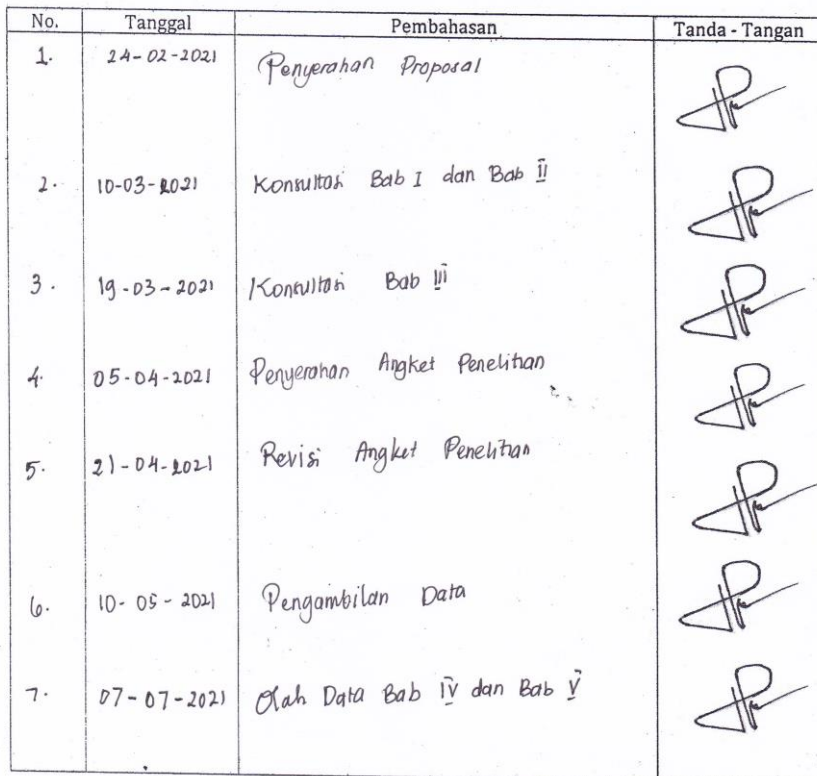 No. Tanggal Pembahasan Tanda - Tangan
1. 24-02-2021 Penyerahan Proposal
2. 10-03-2021 Konsultasi Bab I dan Bab II
3. 19-03-2021 Konsultasi Bab III
4. 05-04-2021 Penyerahan Angket Penelitian
5. 21-04-2021 Revisi Angket Penelitian
6. 10-05-2021 Pengambilan Data
7. 07-07-2021 Olah Data Bab IV dan Bab V